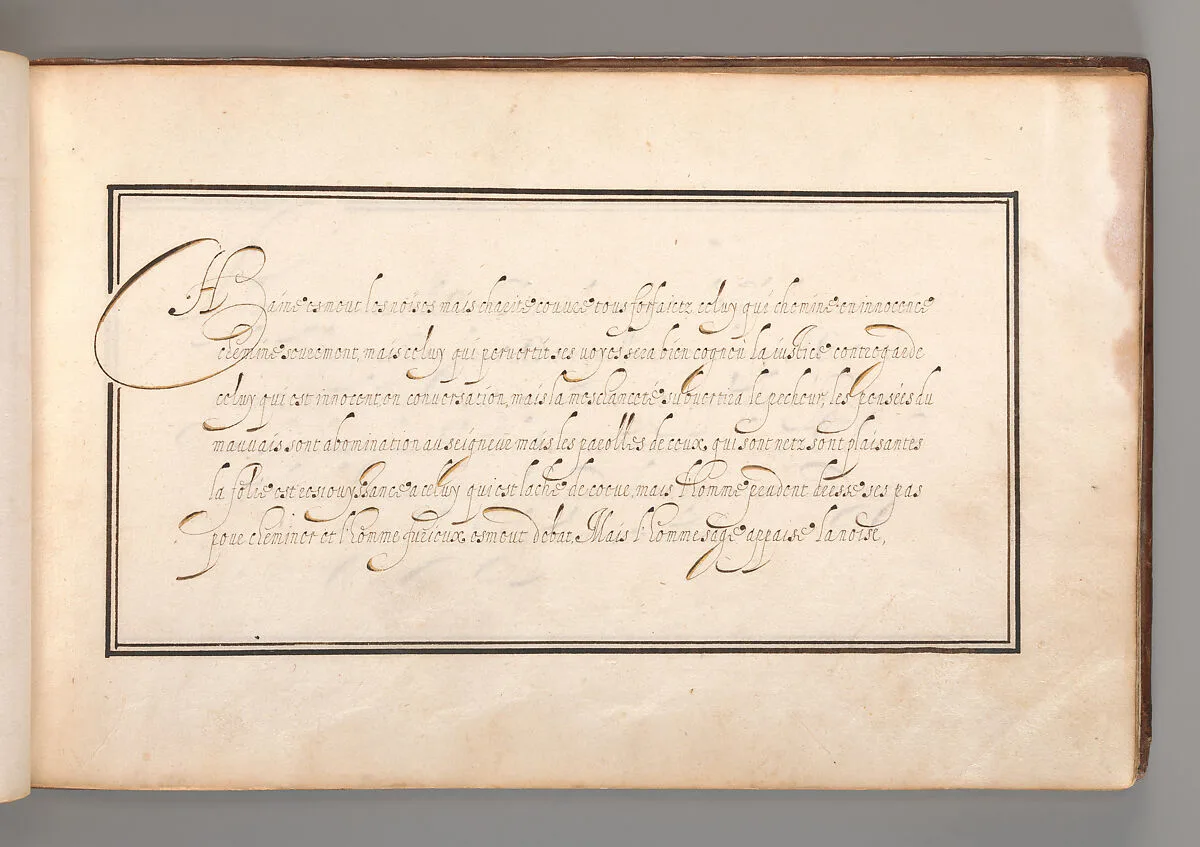 Haine esmeut les noises mais charite couvre tous forfaictz, celuy qui chemine en innocence
chemine seurement, mais celuy qui pervertit ses voyes sera bien cogneu la iustice contregarde
celuy qui est innocent, en conversation, mais la meschanceté subvertira le pecheur, les pensées du
mauvais sont abomination au seigneur mais les parolles de ceux, qui sont netz sont plaisantes
la folie est resiouyssance a celuy qui est lache de coeur, mais l'homme prudent dresse ses pas
pour cheminer et l'homme furieux esmeut debat, Mais l'homme sage appaise la noise,